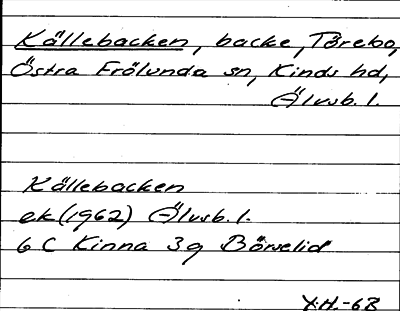 Källebacken, backe, Törebo,
Östra Frölunda sn, Kinds hd,
Älvsb. l.
Källebacken
ek (1962) Älvsb. l.
6 C Kinna 3 g Bövelid
Y.H.-68